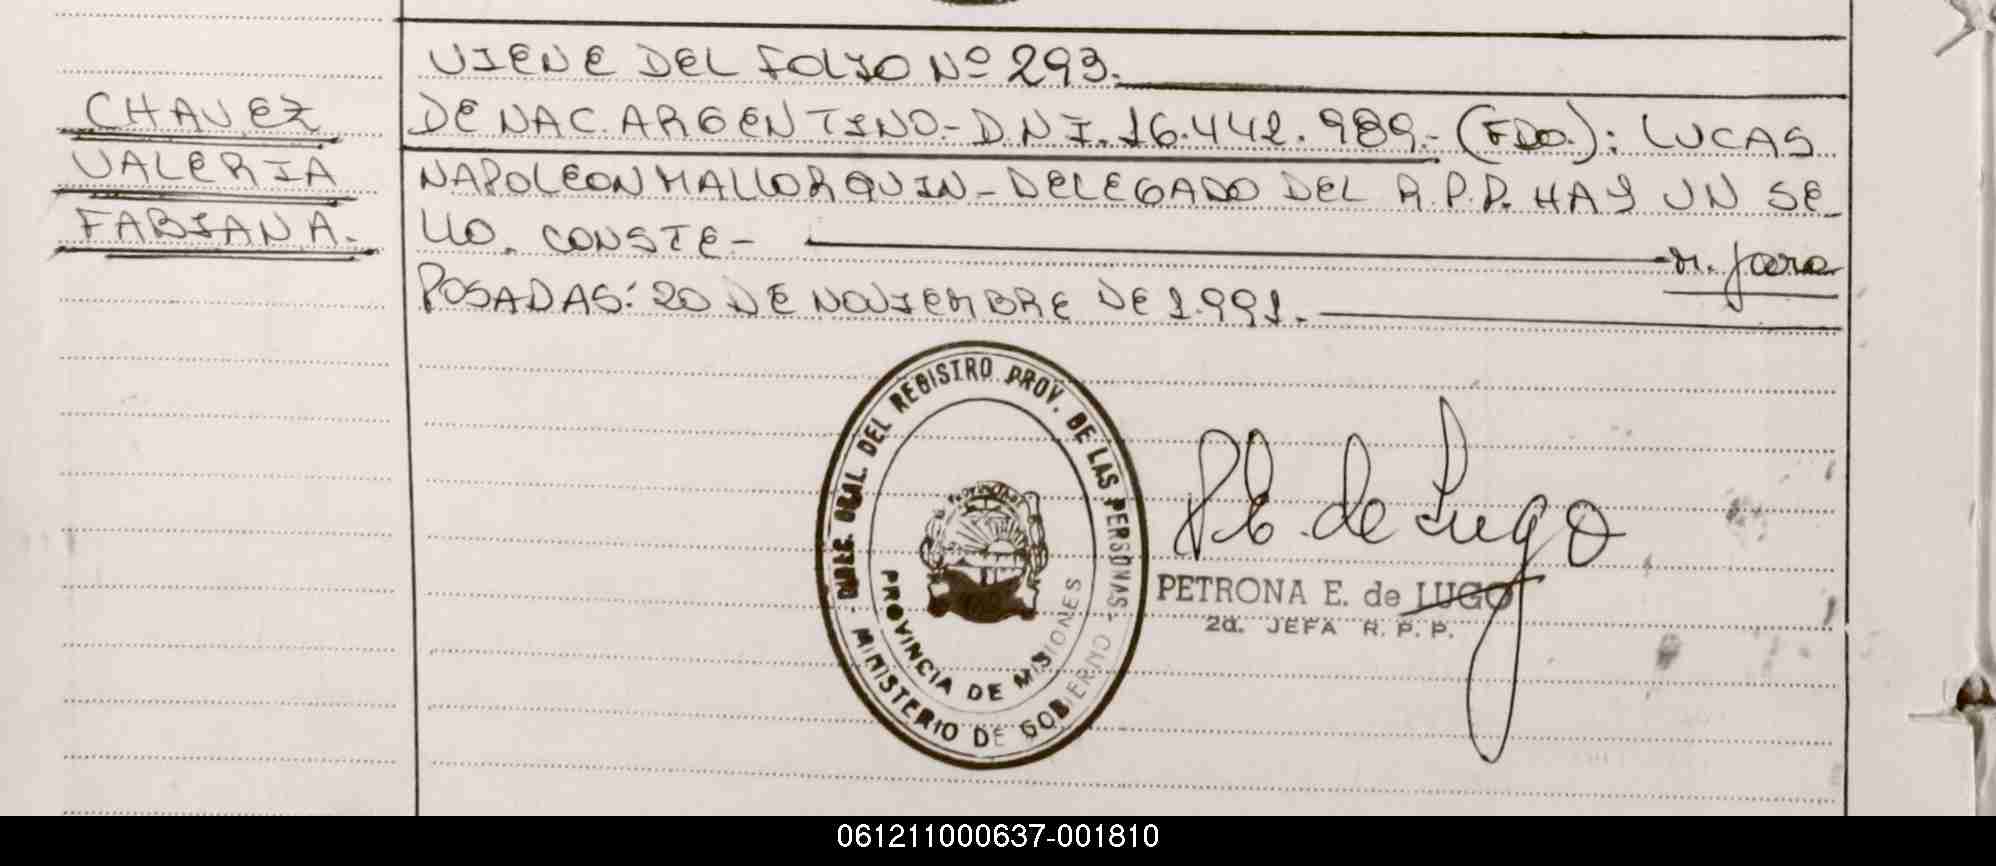 VIENE DEL FOLIO Nº 293.
CHAVEZ
VALERIA
FABIANA.
DE NAC. ARGENTINO.- D.N.I. 16.442.989.- (FDO.): LUCAS
NAPOLEON MALLORQUIN - DELEGADO DEL R.P.P. HAY UN SE
LLO. CONSTE -
M. Jara
POSADAS: 20 DE NOVIEMBRE DE 1.991.
DIREC. GRAL. DEL REGISTRO PROV. DE LAS PERSONAS - MINISTERIO DE GOBIERNO
PROVINCIA DE MISIONES
P E. de Lugo
PETRONA E. de LUGO
2a. JEFA R. P. P.
061211000637-001810